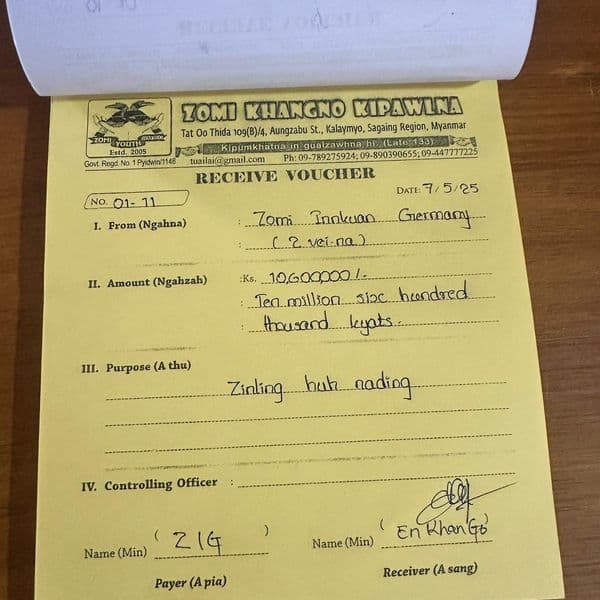 ZOMI KHANGNO KIPAWLNA
Tat Oo Thida 109(B)/4, Aungzabu St., Kalaymyo, Sagaing Region, Myanmar
ZOMI YOUTH ASSOCIATION
Estd. 2005
Kipumkhatna in gualzawhna hi. (Late 133)
Govt. Regd. No. 1 Pyidwin/1148
tuailai@gmail.com Ph: 09-789275924; 09-890390655; 09-447777225
RECEIVE VOUCHER
NO. 01-11
DATE: 7/5/25
I. From (Ngahna) : Zomi Innkuan Germany
: ( 2 vei-na )
II. Amount (Ngahzah) :Ks. 10,600,000/-
: Ten million six hundred
: thousand kyats.
III. Purpose (A thu)
Zinling huh nading
IV. Controlling Officer :
Name (Min) ( ZIG ) Name (Min) ( En Khan Go )
Payer (A pia) Receiver (A sang)